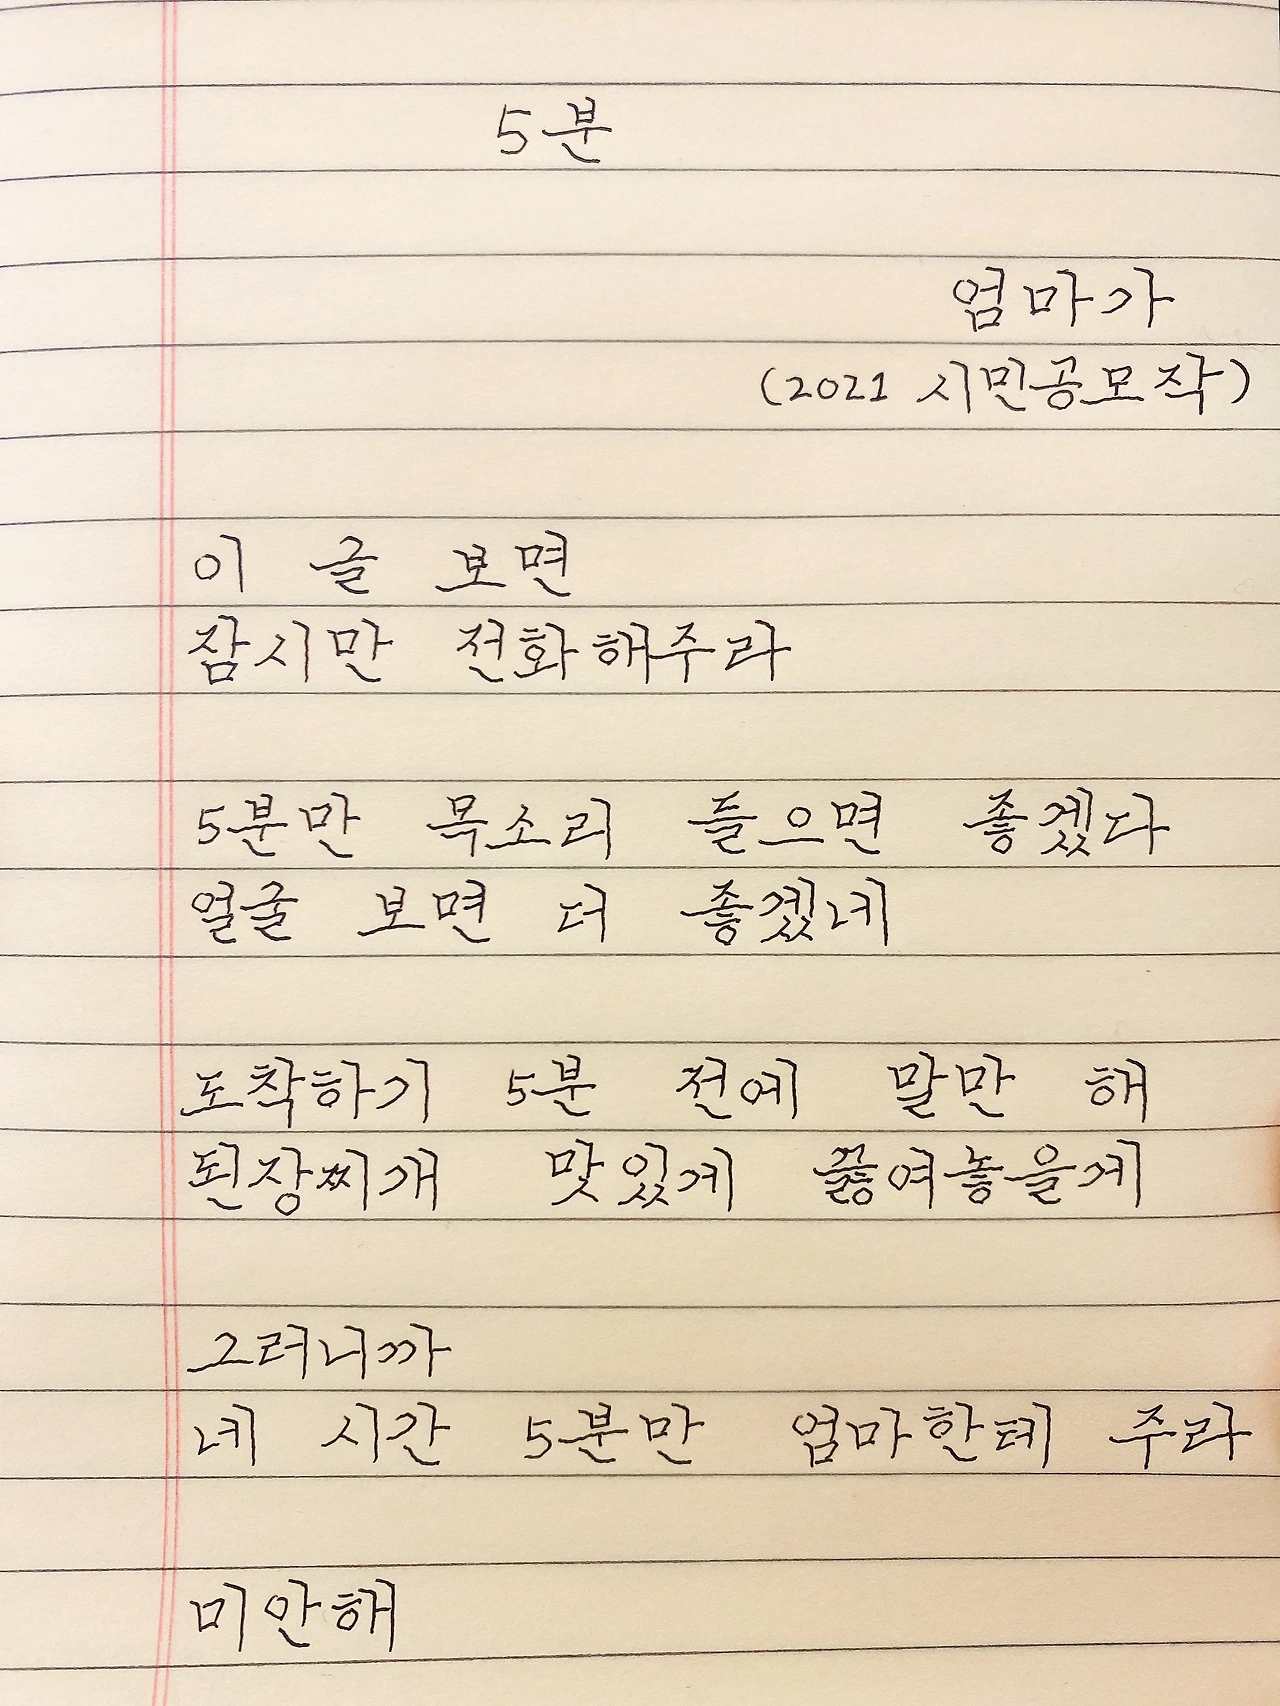 5분
엄마가
(2021 시민공모작)
이 글 보면
잠시만 전화해주라
5분만 목소리 들으면 좋겠다
얼굴 보면 더 좋겠네
도착하기 5분 전에 말만 해
된장찌개 맛있게 끓여놓을게
그러니까
네 시간 5분만 엄마한테 주라
미안해